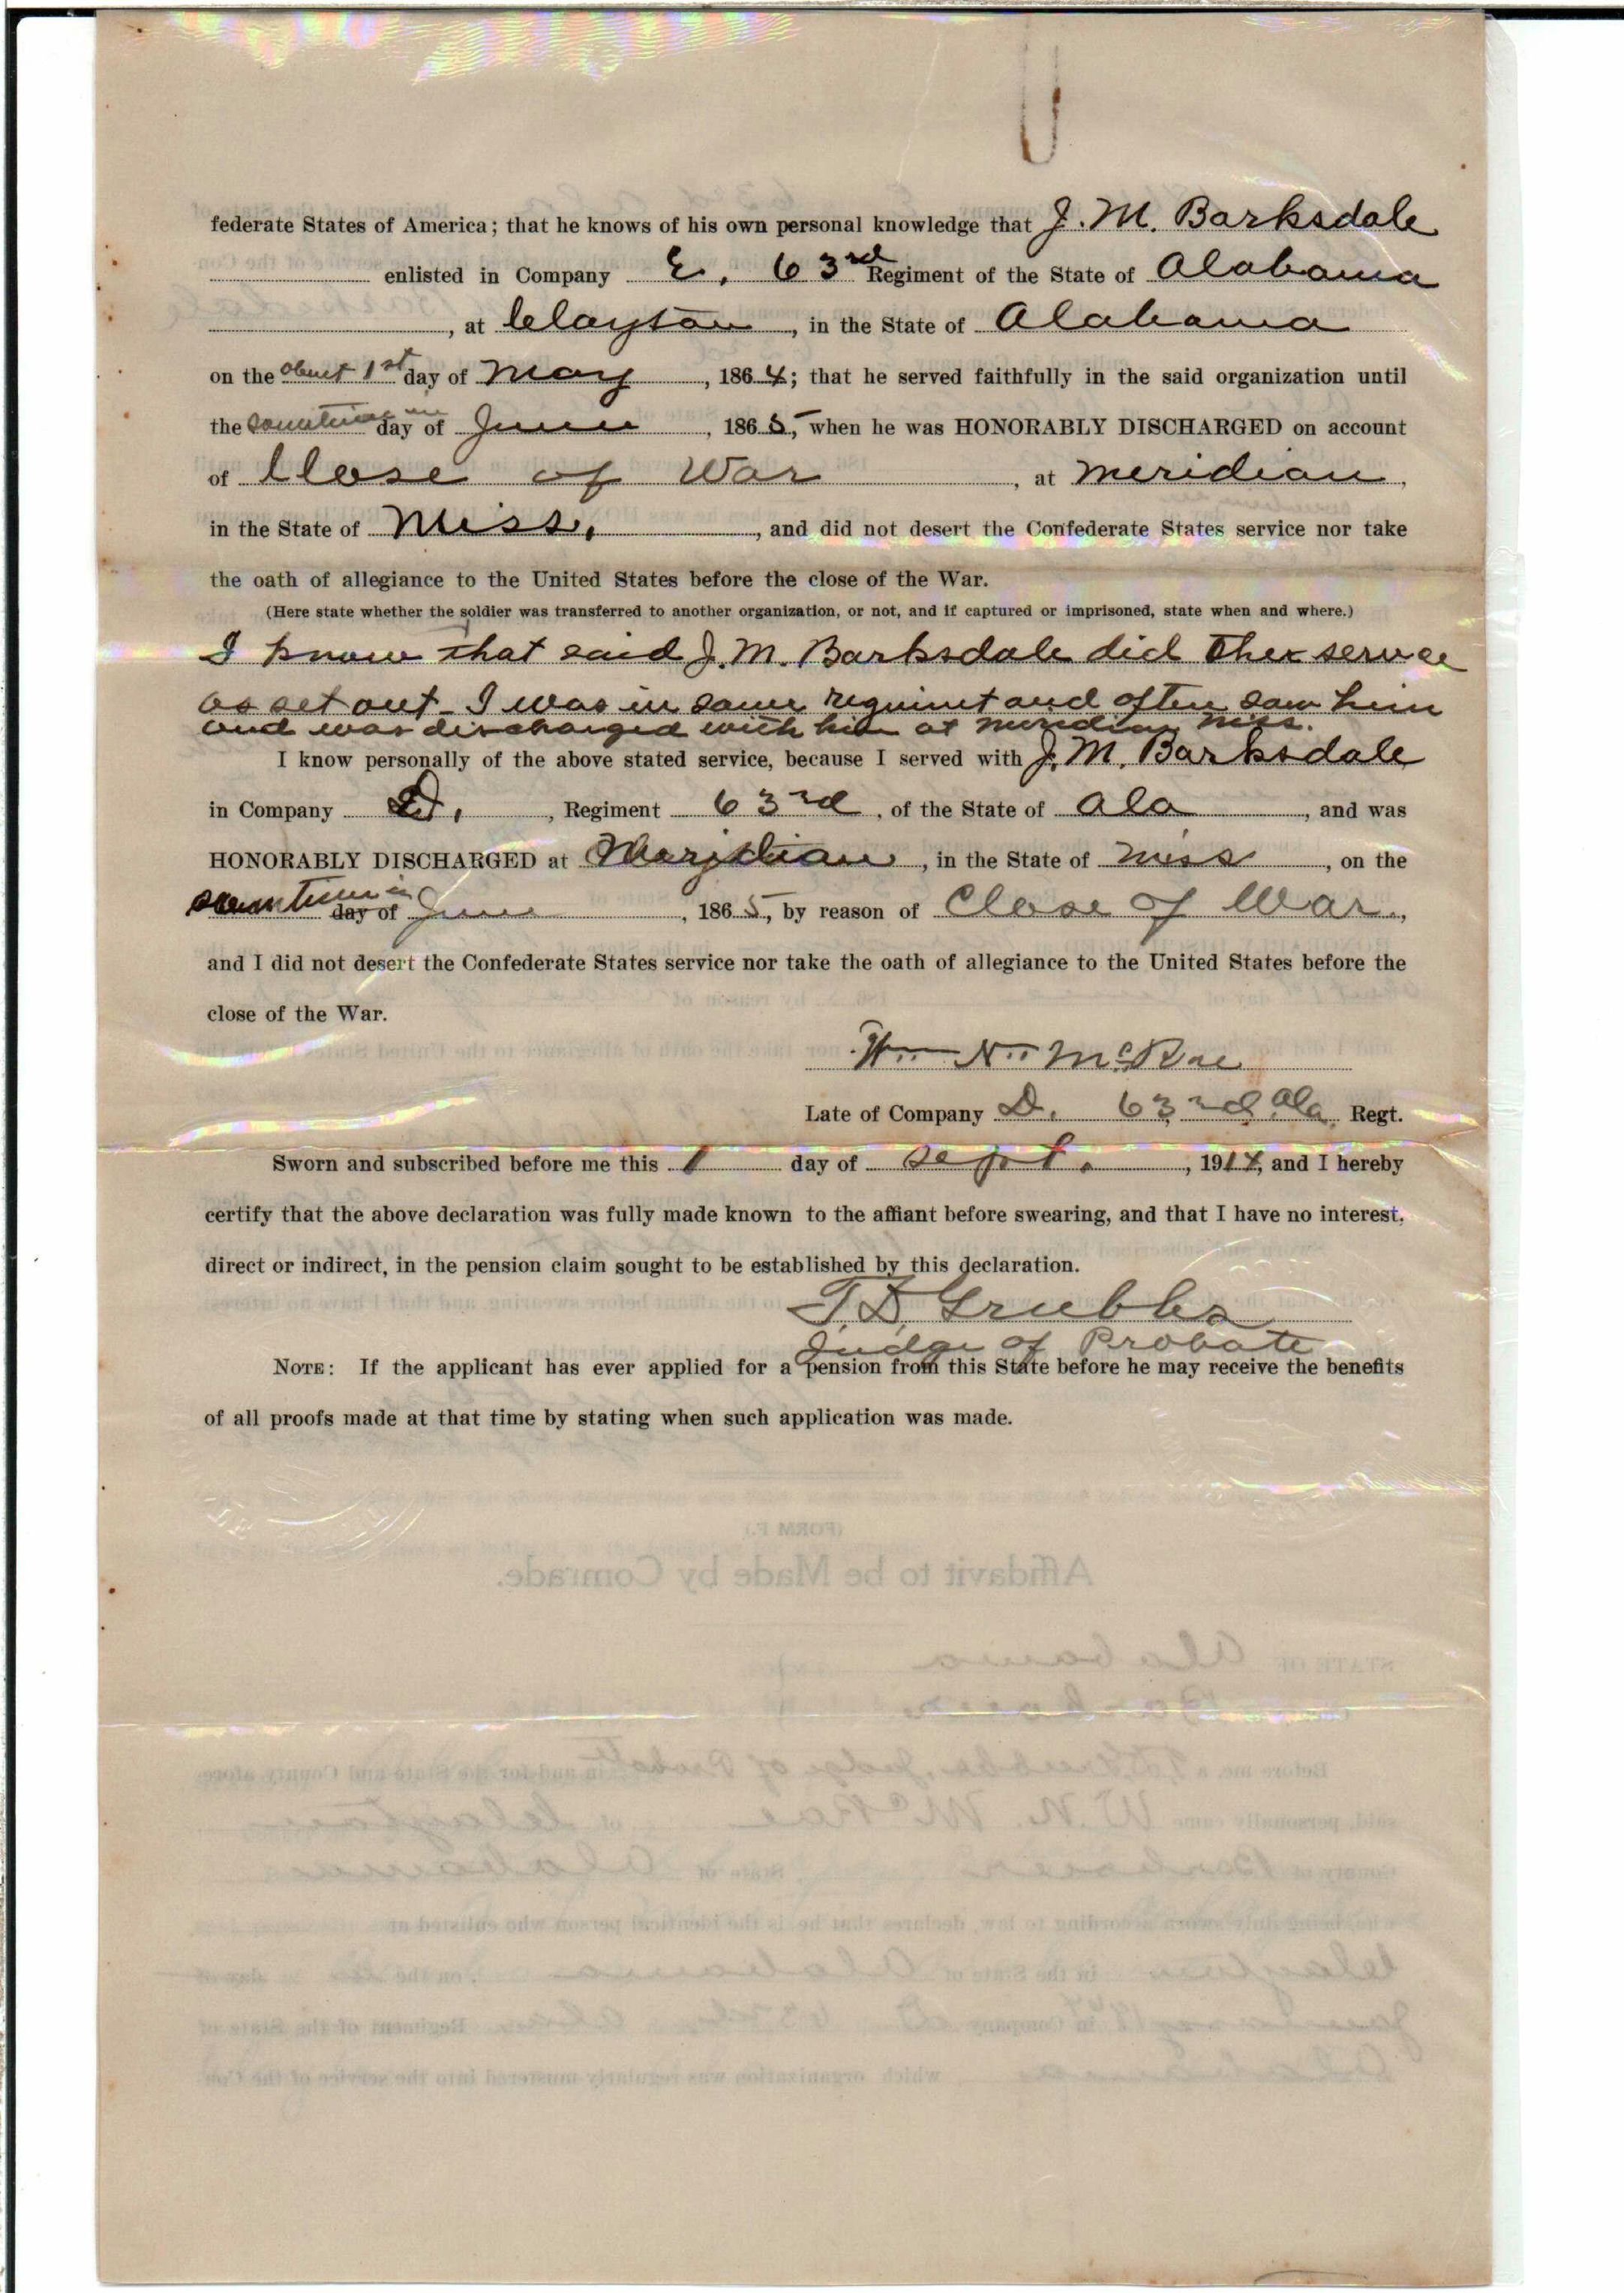 federate States of America; that he knows of his own personal knowledge that J. M. Barksdale
enlisted in Company E, 63rd Regiment of the State of Alabama
, at Clayton, in the State of Alabama
on the about 1st day of May, 1864; that he served faithfully in the said organization until
the sometime in day of June, 1865, when he was HONORABLY DISCHARGED on account
of Close of War, at Meridian,
in the State of Miss., and did not desert the Confederate States service nor take
the oath of allegiance to the United States before the close of the War.
(Here state whether the soldier was transferred to another organization, or not, and if captured or imprisoned, state when and where.)
I know that said J. M. Barksdale did the service
as set out – I was in same regiment and often saw him
and was discharged with him at Meridian Miss.
I know personally of the above stated service, because I served with J. M. Barksdale
in Company D., Regiment 63rd, of the State of Ala, and was
HONORABLY DISCHARGED at Meridian, in the State of Miss, on the
sometime in day of June, 1865, by reason of Close of War.,
and I did not desert the Confederate States service nor take the oath of allegiance to the United States before the
close of the War.
Wm N. McRae
Late of Company D. 63rd Ala Regt.
Sworn and subscribed before me this 1 day of Sept., 1914, and I hereby
certify that the above declaration was fully made known to the affiant before swearing, and that I have no interest,
direct or indirect, in the pension claim sought to be established by this declaration.
T. D. Grubbs
Judge of Probate
NOTE: If the applicant has ever applied for a pension from this State before he may receive the benefits
of all proofs made at that time by stating when such application was made.
(FORM F.)
Affidavit to be Made by Comrade.
STATE OF Alabama